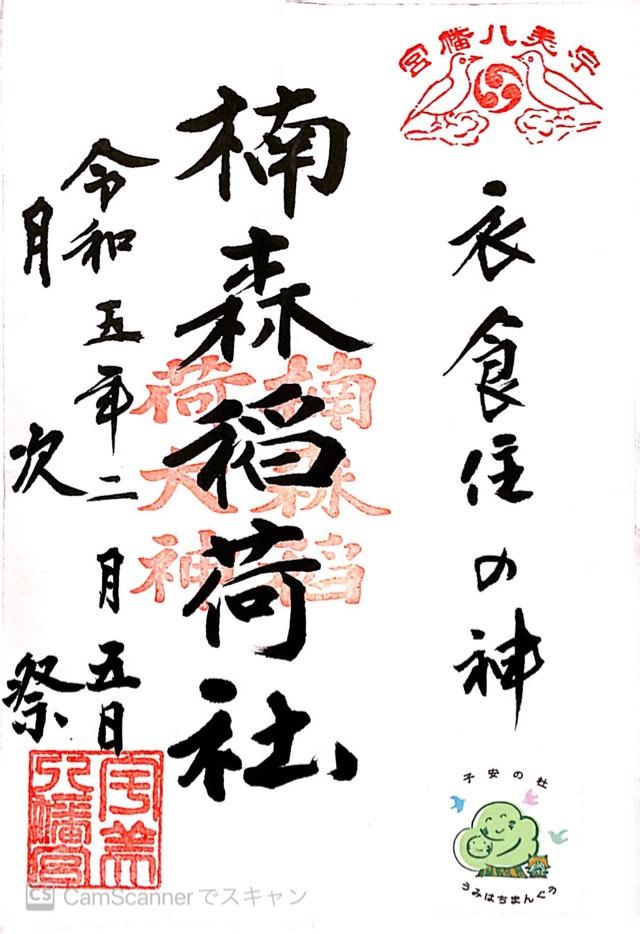 宇美八幡宮
衣食住の神
楠森稲荷社
楠森稲
荷大神
令和五年二月五日
月次祭
宇美
八幡宮
子安の杜
うみはちまんぐう
CS CamScannerでスキャン